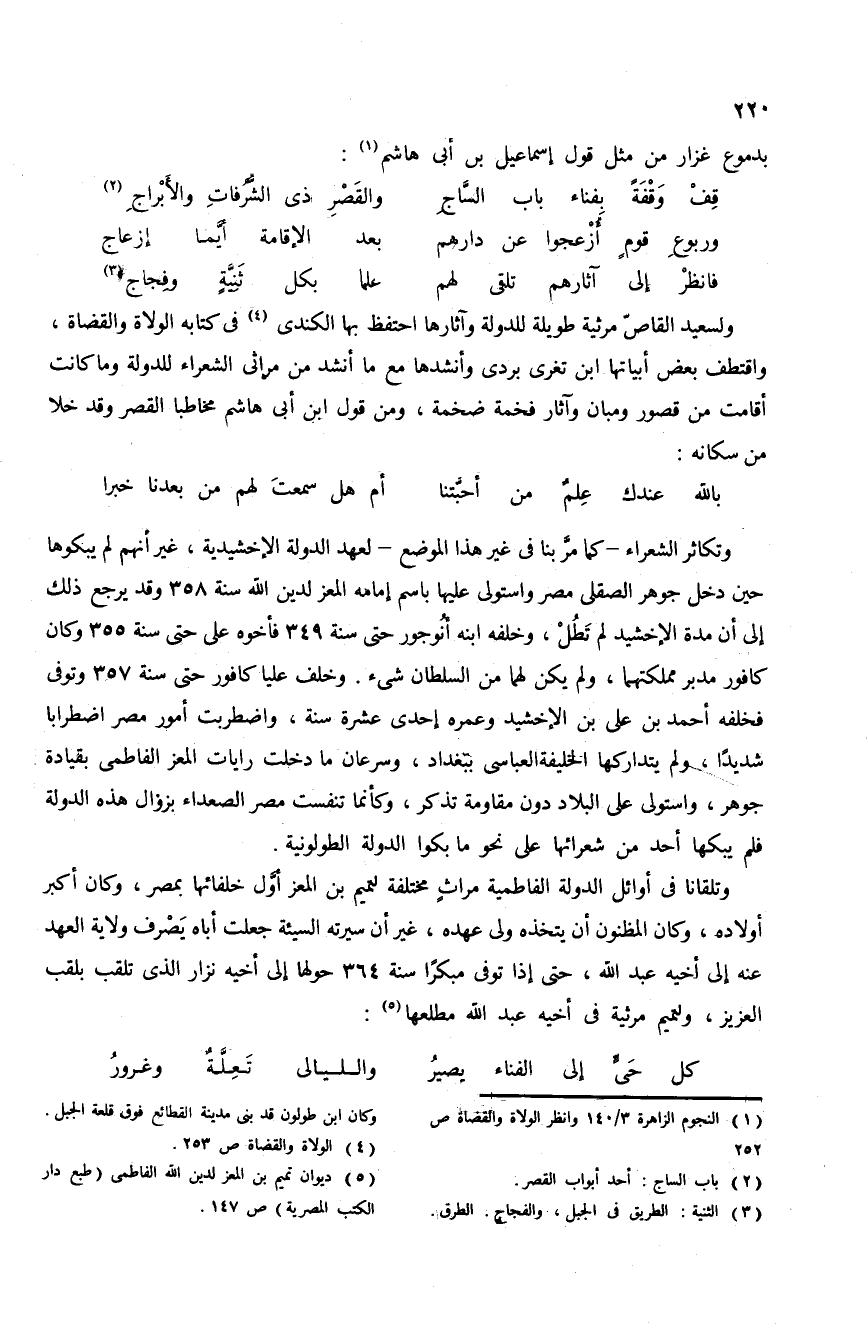 ٢٢٠
بدموع غزار من مثل قول إسماعيل بن أبى هاشم(١) :
قِفْ وَقْفَةً بِفناء باب السَّاجِ والقَصْرِ ذى الشُّرفاتِ والأَبْراجِ(٢)
وربوعِ قومٍ أُزْعجوا عن دارهم بعد الإقامة أَيَّما إزعاج
فانظرْ إلى آثارهم تلقى لهم علما بكل ثَنِيَّةٍ وفِجاج(٣)
ولسعيد القاصّ مرثية طويلة للدولة وآثارها احتفظ بها الكندى (٤) فى كتابه الولاة والقضاة ،
واقتطف بعض أبياتها ابن تغرى بردى وأنشدها مع ما أنشد من مراثى الشعراء للدولة وما كانت
أقامت من قصور ومبان وآثار فخمة ضخمة ، ومن قول ابن أبى هاشم مخاطبا القصر وقد خلا
من سكانه :
بالله عندك عِلمٌ من أحبَّتنا أم هل سمعتَ لهم من بعدنا خبرا
وتكاثر الشعراء – كما مرَّ بنا فى غير هذا الموضع – لعهد الدولة الإخشيدية ، غير أنهم لم يبكوها
حين دخل جوهر الصقلى مصر واستولى عليها باسم إمامه المعز لدين الله سنة ٣٥٨ وقد يرجع ذلك
إلى أن مدة الإخشيد لم تَطُلْ ، وخلفه ابنه أنُوجور حتى سنة ٣٤٩ فأخوه على حتى سنة ٣٥٥ وكان
كافور مدبر مملكتهما ، ولم يكن لهما من السلطان شىء . وخلف عليا كافور حتى سنة ٣٥٧ وتوفى
فخلفه أحمد بن على بن الإخشيد وعمره إحدى عشرة سنة ، واضطربت أمور مصر اضطرابا
شديدًا ، ولم يتداركها الخليفة العباسى ببغداد ، وسرعان ما دخلت رايات المعز الفاطمى بقيادة
جوهر ، واستولى على البلاد دون مقاومة تذكر ، وكأنما تنفست مصر الصعداء بزوال هذه الدولة
فلم يبكها أحد من شعرائها على نحو ما بكوا الدولة الطولونية .
وتلقانا فى أوائل الدولة الفاطمية مراثٍ مختلفة لتميم بن المعز أوَّل خلفائها بمصر ، وكان أكبر
أولاده ، وكان المظنون أن يتخذه ولى عهده ، غير أن سيرته السيئة جعلت أباه يَصْرف ولاية العهد
عنه إلى أخيه عبد الله ، حتى إذا توفى مبكرًا سنة ٣٦٤ حولها إلى أخيه نزار الذى تلقب بلقب
العزيز ، ولتميم مرثية فى أخيه عبد الله مطلعها(٥) :
كل حَىٍّ إلى الفناء يصيرُ والـلـيـالى تَـعِـلَّـةٌ وغـرورُ
(١) النجوم الزاهرة ١٤٠/٣ وانظر الولاة والقضاة ص
٢٥٢
(٢) باب الساج : أحد أبواب القصر .
(٣) الثنية : الطريق فى الجبل ، والفجاج . الطرق .
وكان ابن طولون قد بنى مدينة القطائع فوق قلعة الجبل .
(٤) الولاة والقضاة ص ٢٥٣ .
(٥) ديوان تميم بن المعز لدين الله الفاطمى ( طبع دار
الكتب المصرية ) ص ١٤٧ .